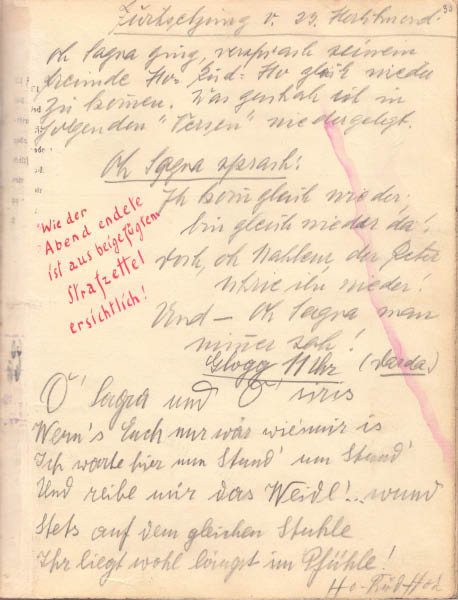 30
Fortsetzung v. 23. Herbstmond.
Oh Sagra ging, versprach seinem
Freunde Ho-Rüd-Ho gleich wieder
zu kommen. Was geschah ist in
folgenden "Versen" niedergelegt.
Oh Sagra sprach:
Ich komm gleich wieder,
bin gleich wieder da!
Doch, oh der Peter
ihn nieder!
Und – Oh Sagra man
nimmer sah!
Glogg 11 Uhr (Darda.)
Wie der
Abend endete
ist aus beigefügtem
Strafzettel
ersichtlich!
O' Sagra und O' siris
Wenn's Euch nur wär wie's mir is
Ich warte hier um Stund' um Stund'
Und reibe mir das Weidl!.. wund
Stets auf dem gleichen Stuhle
Ihr liegt wohl längst im Pfühle!
Ho-Rüd-Ho